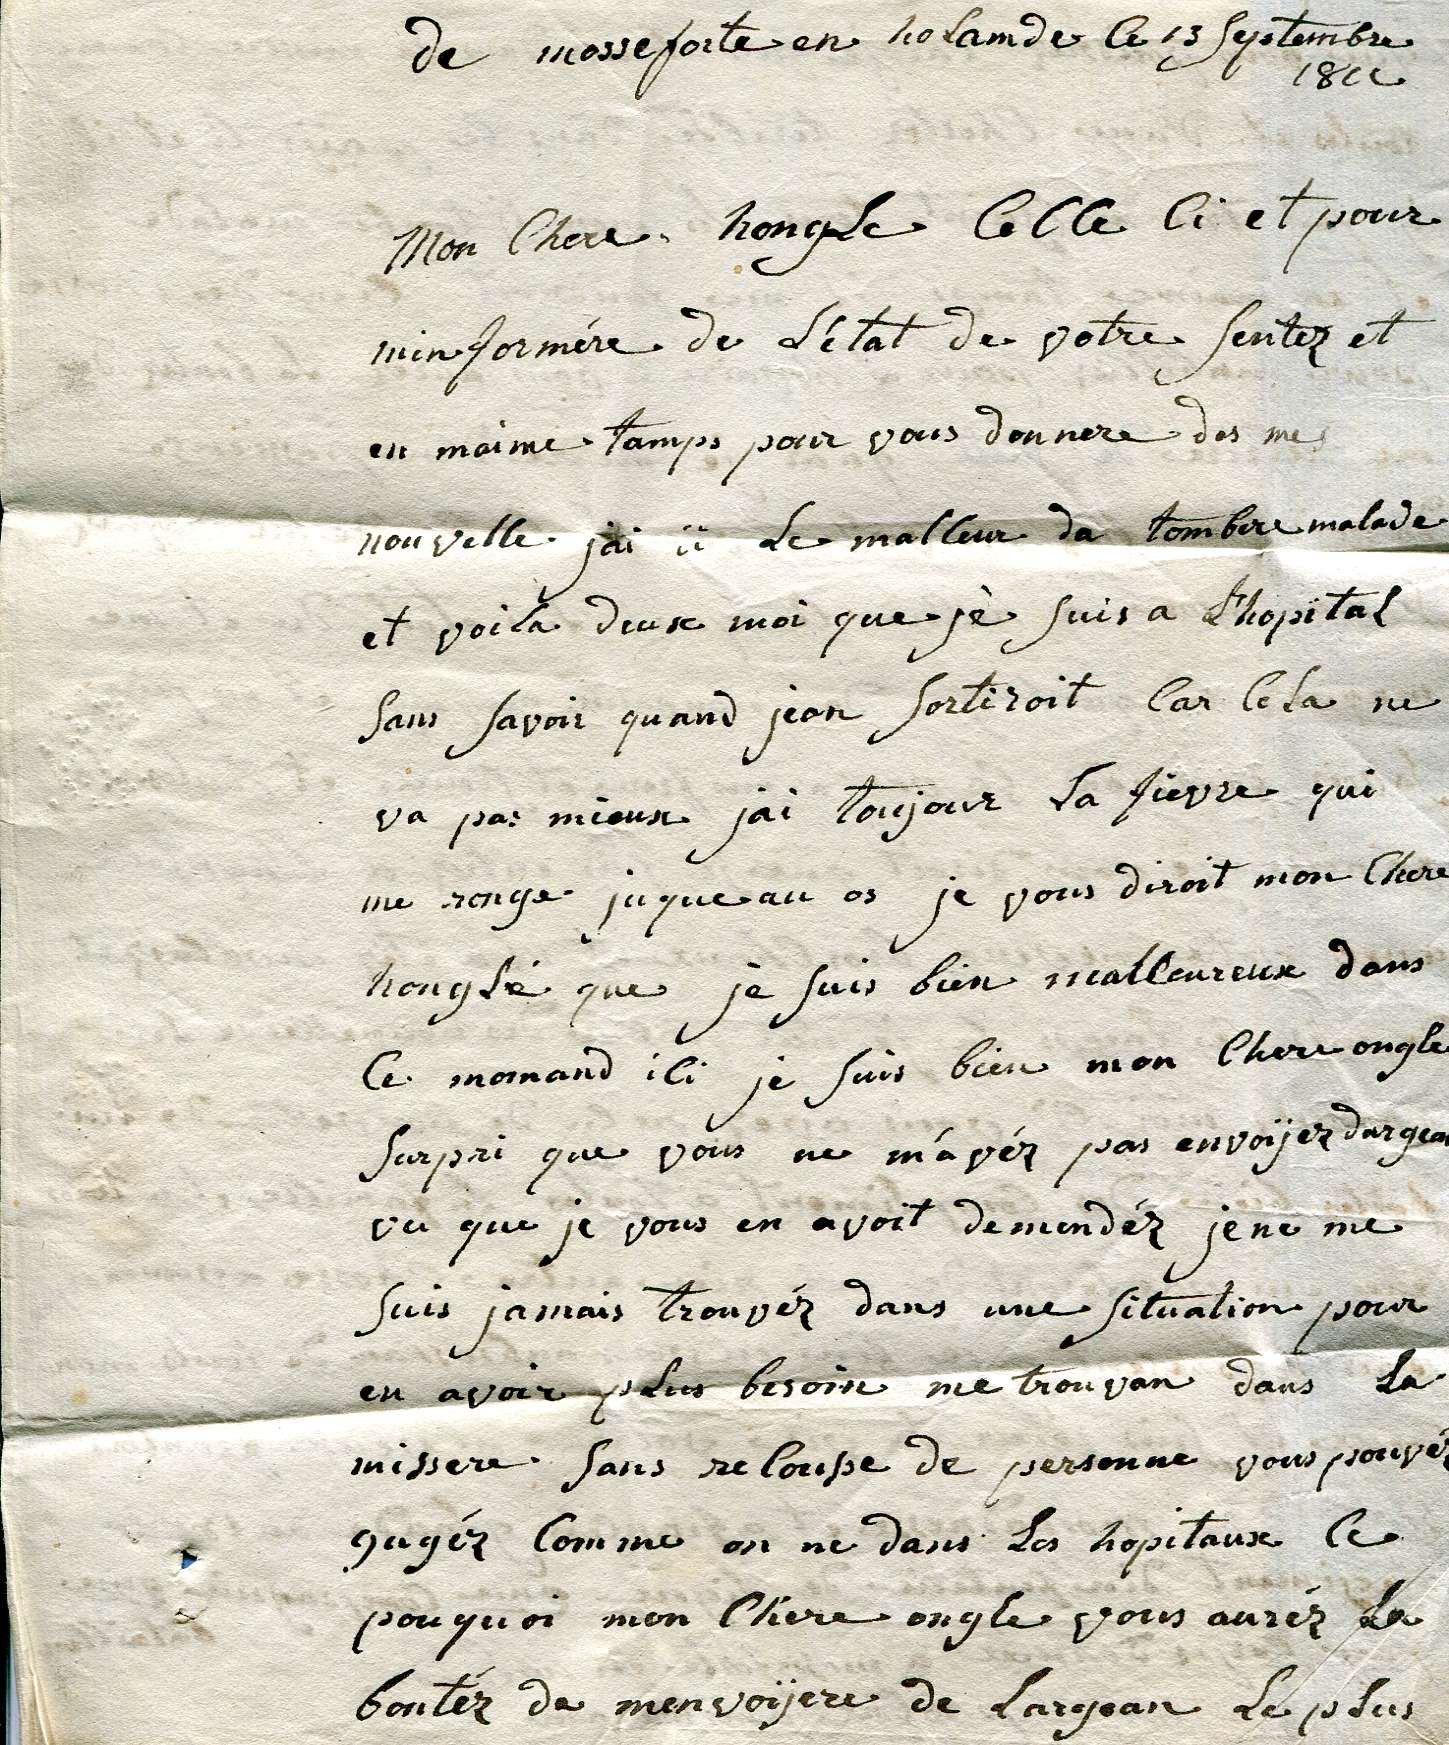 de mosseforte en holamde le 13 Septembre
1811
Mon Chere hongle Celle Ci et pour
minformére de L'état de votre Sentez et
en maime tamps pour vous donnere des me
nouvelle jai ü Le malleur da tombere malade
et voila deux moi que jè suis a L'hopital
Sans savoir quand jean Sortiroit Car Cela ne
va pas mieux jai toujour La fievre qui
me ronge juqueau os je vous diroit mon Chere
hongle que je suis bien malleureux dans
Ce momand iCi je suis bien mon Chere ongle
Surpri que vous ne m'avéz pas envoÿez dargean
vu que je vous en avoit demendéz je ne me
Suis jamais trouvéz dans une Situation pour
en avoir plus besoin me trouvan dans La
missere Sans reCousse de personne vous pouvéz
gugéz Comme on ne dans Les hopitaux Ce
pouquoi mon Chere ongle vous auréz La
bontéz de menvoÿere de Largean Le plus